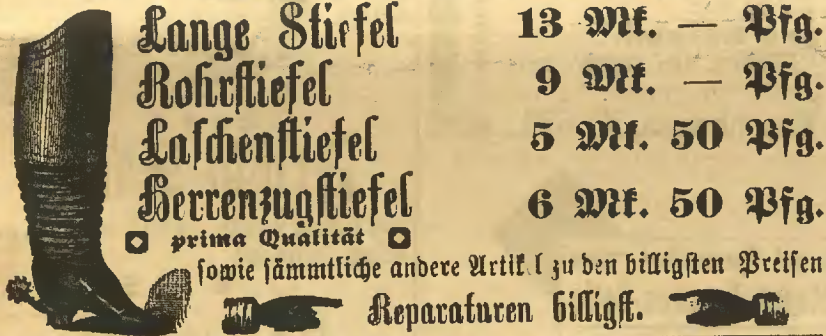 Lange Stiefel 13 Mk. — Pfg.
Rohrstiefel 9 Mk. — Pfg.
Laschenstiefel 5 Mk. 50 Pfg.
Herrenzugstiefel 6 Mk. 50 Pfg.
prima Qualität
sowie sämmtliche andere Artikel zu den billigsten Preisen
Reparaturen billigst.